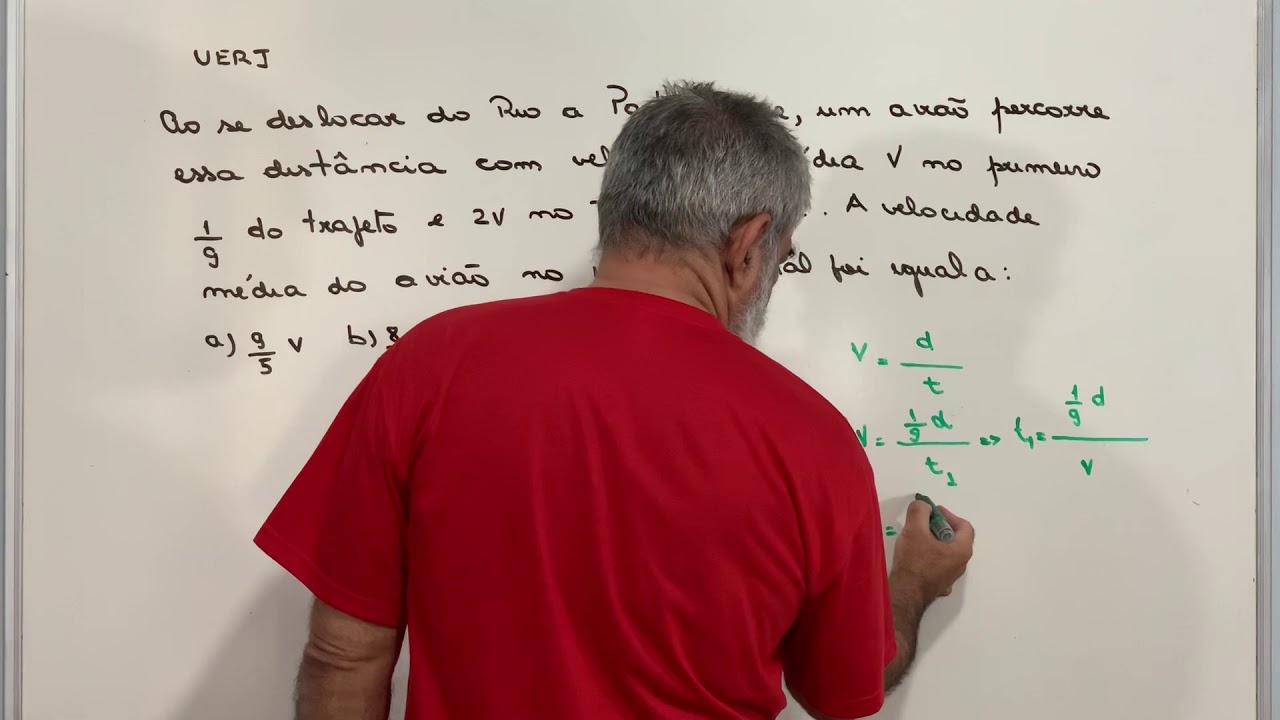 UERJ
Ao se deslocar do Rio a , um avião percorre
essa distância com V no primeiro
1/9 do trajeto e 2V no . A velocidade
média do avião no foi igual a:
a) 9/5 V b) 8
V = d/t
V = (1/9 d)/t1 => t1 = (1/9 d)/V
=